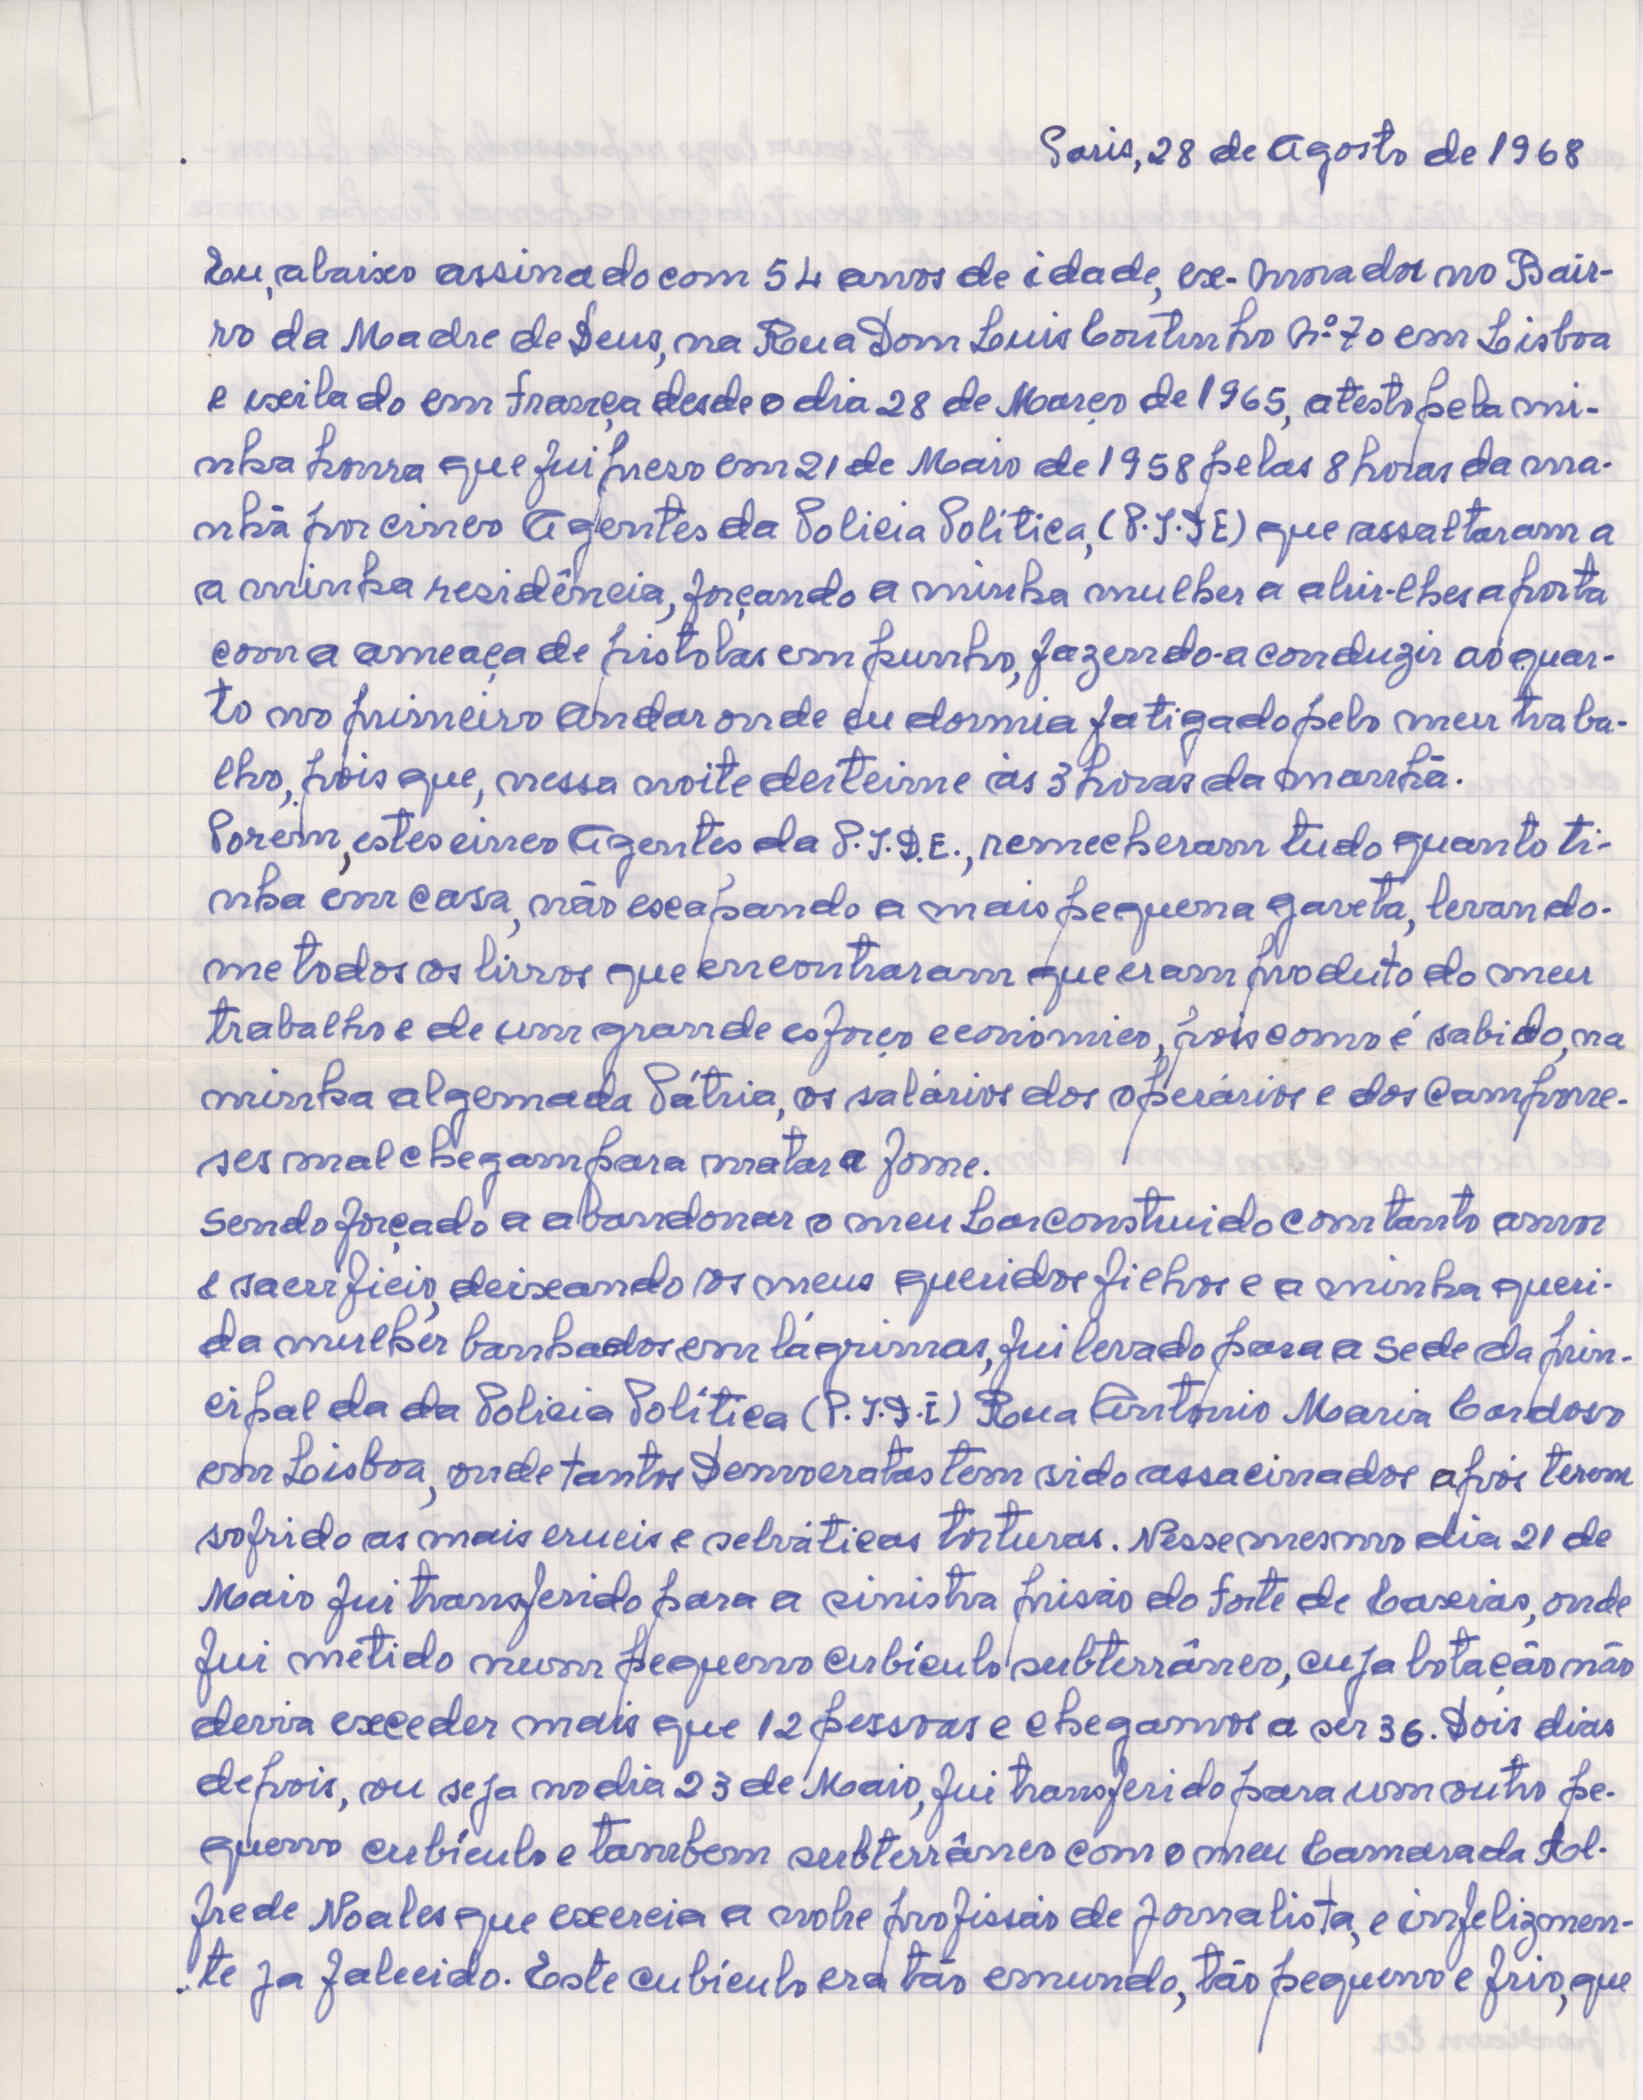 Paris, 28 de Agosto de 1968
Eu, abaixo assinado com 54 anos de idade, ex-morador no Bair-
ro da Madre de Deus, na Rua Dom Luis Coutinho Nº 70 em Lisboa
e exilado em França desde o dia 28 de Março de 1965, atesto pela mi-
nha honra que fui preso em 21 de Maio de 1958 pelas 8 horas da ma-
nhã por cinco Agentes da Policia Política, (P.I.DE) que assaltaram a
a minha residência, forçando a minha mulher a abrir-lhes a porta
com a ameaça de pistolas em punho, fazendo-a conduzir ao quar-
to no primeiro andar onde eu dormia fatigado pelo meu traba-
lho, pois que, nessa noite deiteime ás 3 horas da manhã.
Porém, estes cinco Agentes da P.I.D.E., remecheram tudo quanto ti-
nha em casa, não escapando a mais pequena gaveta, levando-
me todos os livros que encontraram que eram produto do meu
trabalho e de um grande esforço economico, pois como é sabido, na
minha algemada Pátria, os salários dos operários e dos campone-
ses mal chegam para matar a fome.
Sendo forçado a abandonar o meu Lar construido com tanto amor
e sacrificio, deixando os meus queridos filhos e a minha queri-
da mulher banhados em lágrimas, fui levado para a sede da prin-
cipal da da Policia Política (P.I.D.E) Rua António Maria Cardoso
em Lisboa, onde tantos Democratas tem sido assacinados após terem
sofrido as mais crueis e selváticas torturas. Nesse mesmo dia 21 de
Maio fui transferido para a sinistra prisão do forte de Caxias, onde
fui metido num pequeno cubículo subterrâneo, cuja lotação não
devia exceder mais que 12 pessoas e chegamos a ser 36. Dois dias
depois, ou seja no dia 23 de Maio, fui transferido para um outro pe-
queno cubículo e tambem subterrâneo com o meu Camarada Al-
frede Noales que exercia a nobre profissão de jornalista, e infelizmen-
te ja falecido. Este cubículo era tão emundo, tão pequeno e frio, que